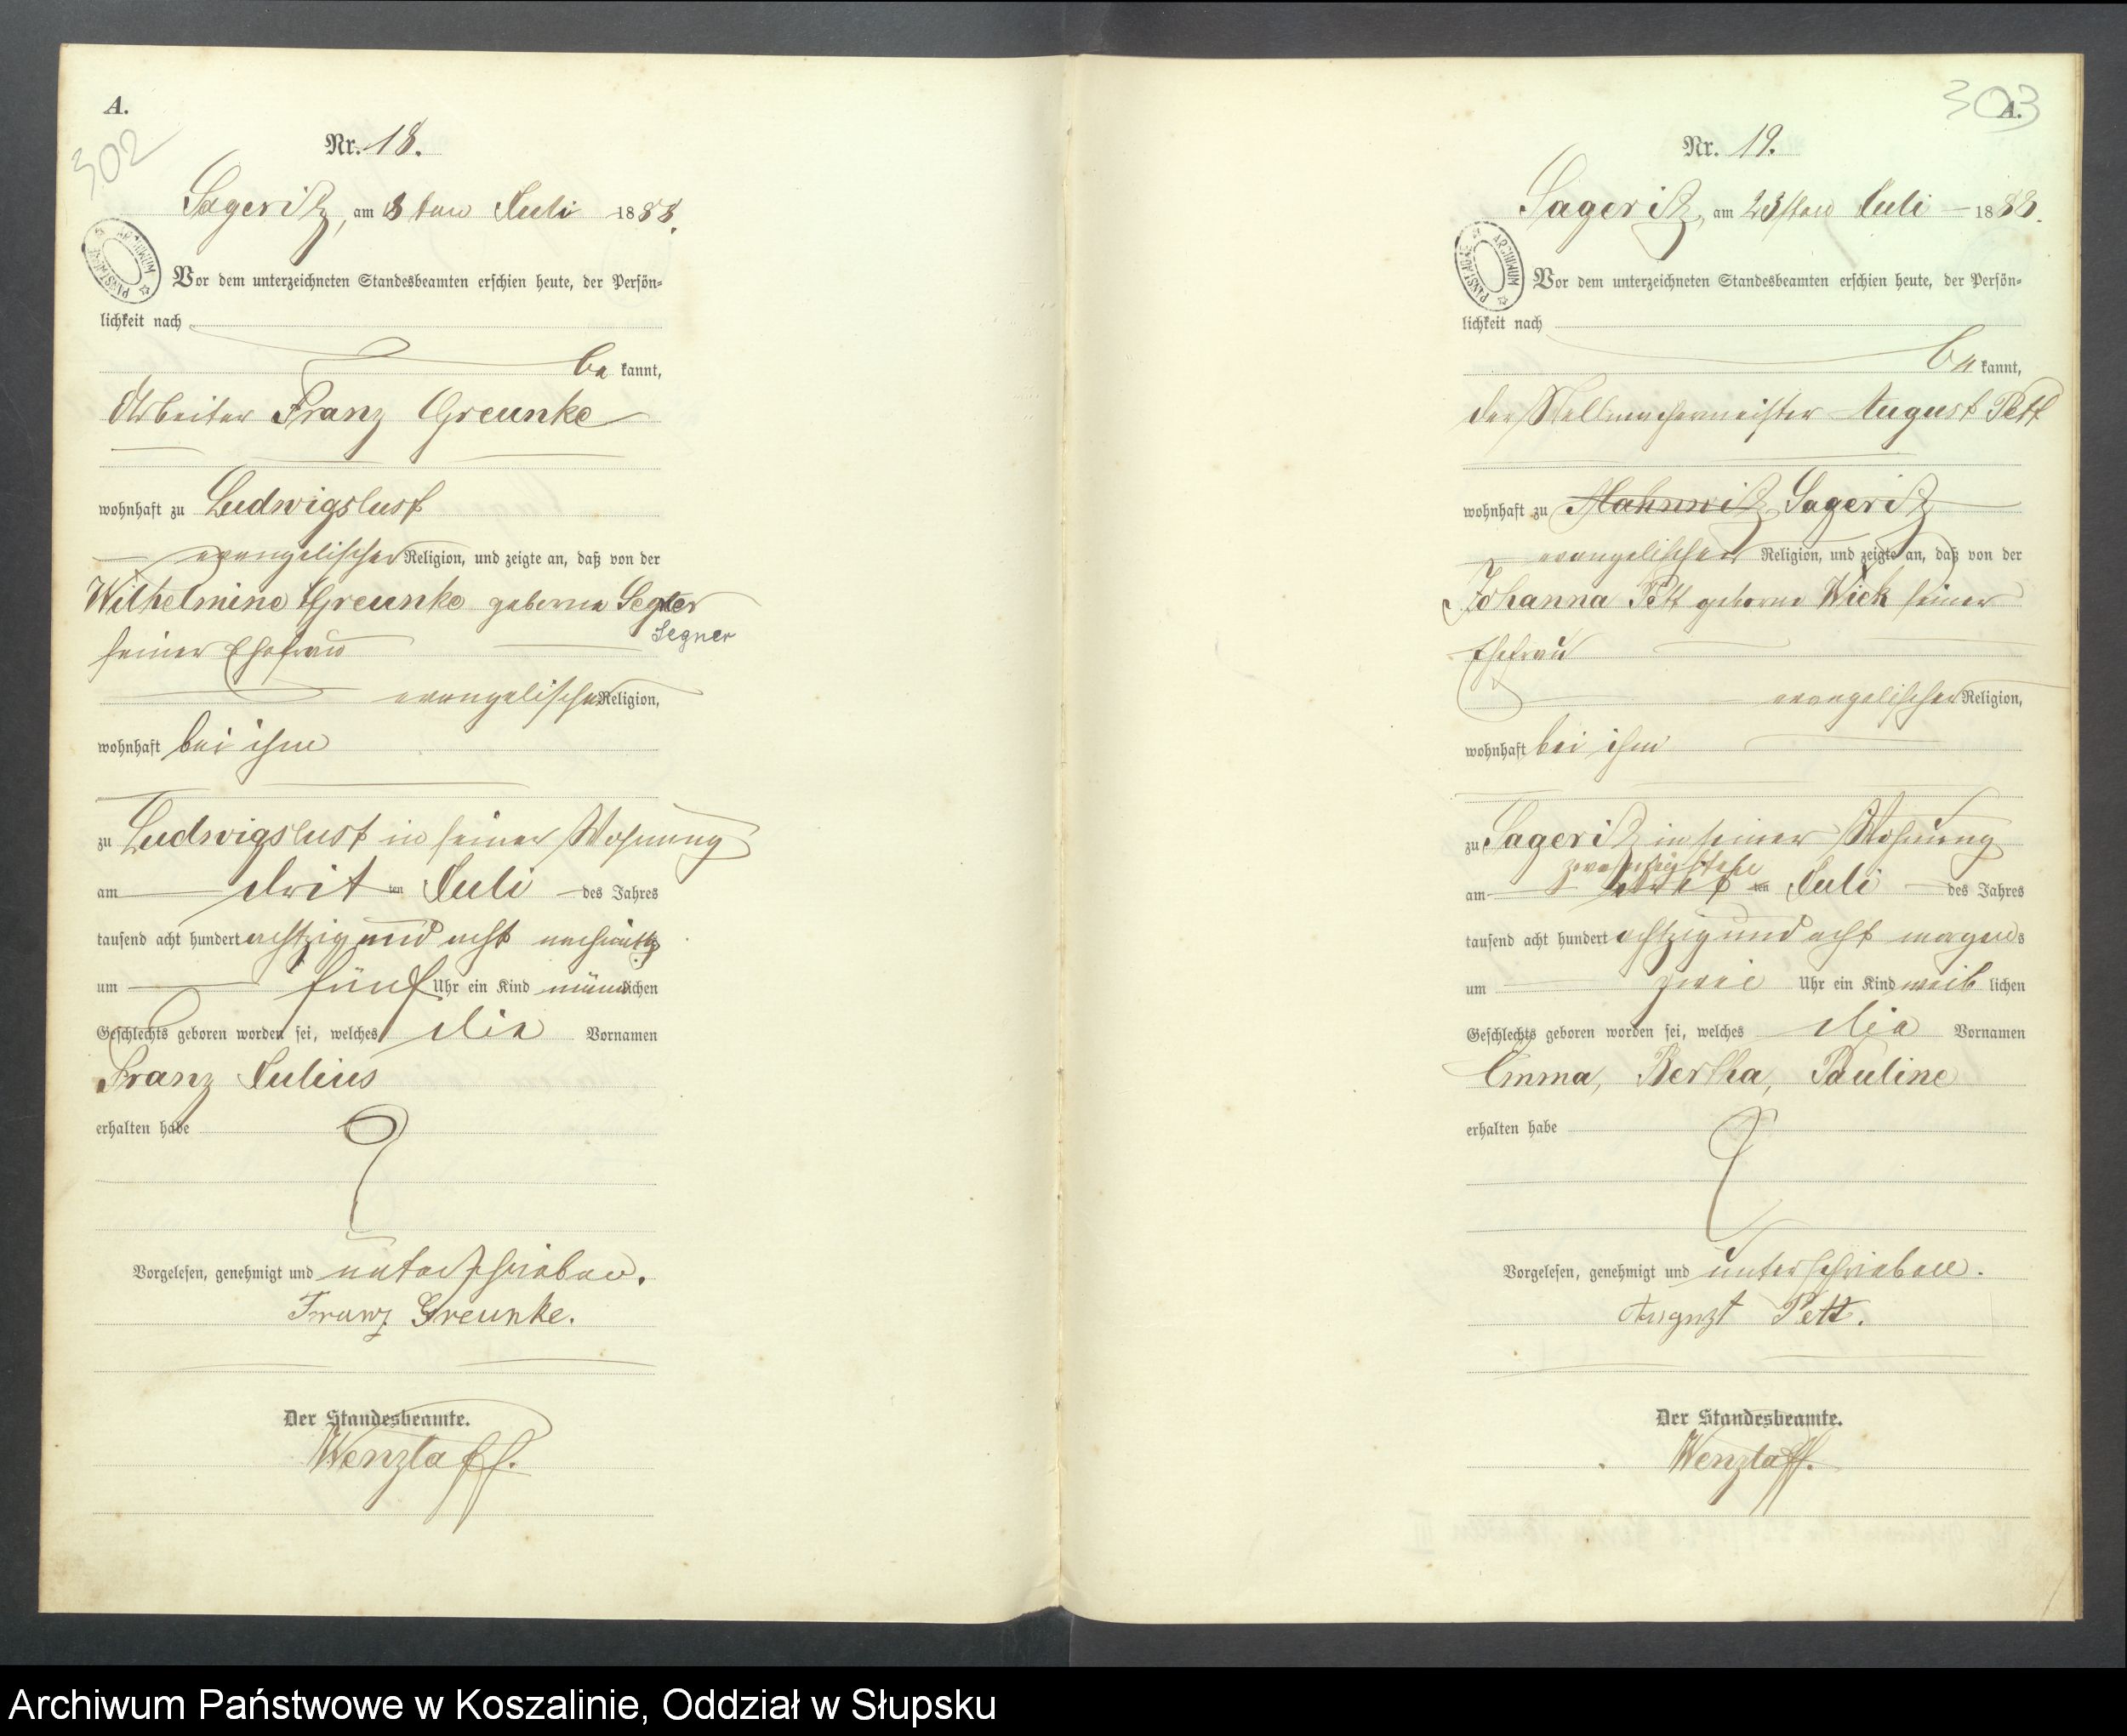 A.
302
Nr. 18.
Sageritz, am 8 ten Juli 1888.
ARCHIWUM PAŃSTWOWE
Vor dem unterzeichneten Standesbeamten erschien heute, der Persön-
lichkeit nach
be kannt,
Arbeiter Franz Greunke
wohnhaft zu Ludwigslust
evangelischer Religion, und zeigte an, daß von der
Wilhelmine Greunke geborne
Segner
seiner Ehefrau
evangelischer Religion,
wohnhaft bei ihm
zu Ludwigslust in seiner Wohnung
am drit ten Juli des Jahres
tausend acht hundert achtzig und acht nachmittags
um fünf Uhr ein Kind männlichen
Geschlechts geboren worden sei, welches die Vornamen
Franz Julius
erhalten habe
Vorgelesen, genehmigt und unterschrieben.
Franz Greunke.
Der Standesbeamte.
Wenzlaff.
303
A.
Nr. 19.
Sageritz, am 23sten Juli 1888.
ARCHIWUM PAŃSTWOWE
Vor dem unterzeichneten Standesbeamten erschien heute, der Persön-
lichkeit nach
be kannt,
der Stellmachermeister August Pett
wohnhaft zu Sageritz
evangelischer Religion, und zeigte an, daß von der
Johanna Pett geborne Wick seiner
Ehefrau
evangelischer Religion,
wohnhaft bei ihm
zu Sageritz in seiner Wohnung
am ten Juli des Jahres
tausend acht hundert achtzig und acht morgens
um zwei Uhr ein Kind weib lichen
Geschlechts geboren worden sei, welches die Vornamen
Emma, Bertha, Pauline
erhalten habe
Vorgelesen, genehmigt und unterschrieben.
August Pett.
Der Standesbeamte.
Wenzlaff.
Archiwum Państwowe w Koszalinie, Oddział w Słupsku